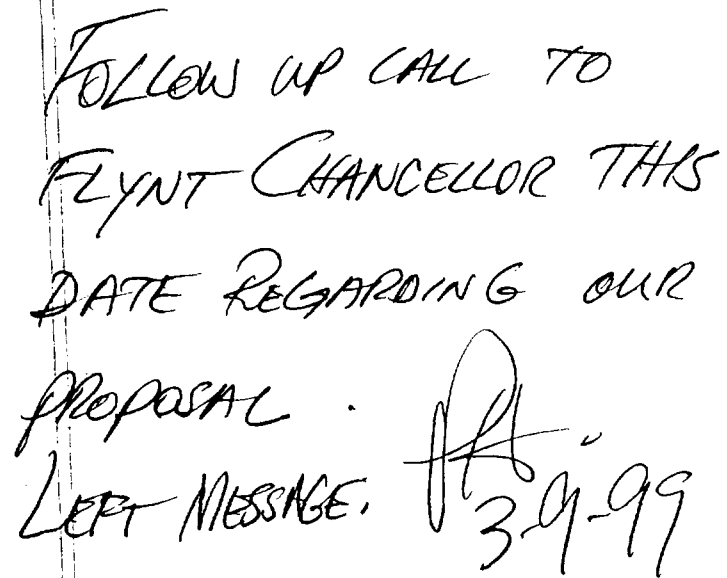 FOLLOW UP CALL TO
FLYNT CHANCELLOR THIS
DATE REGARDING OUR
PROPOSAL.
LEFT MESSAGE.
3-9-99